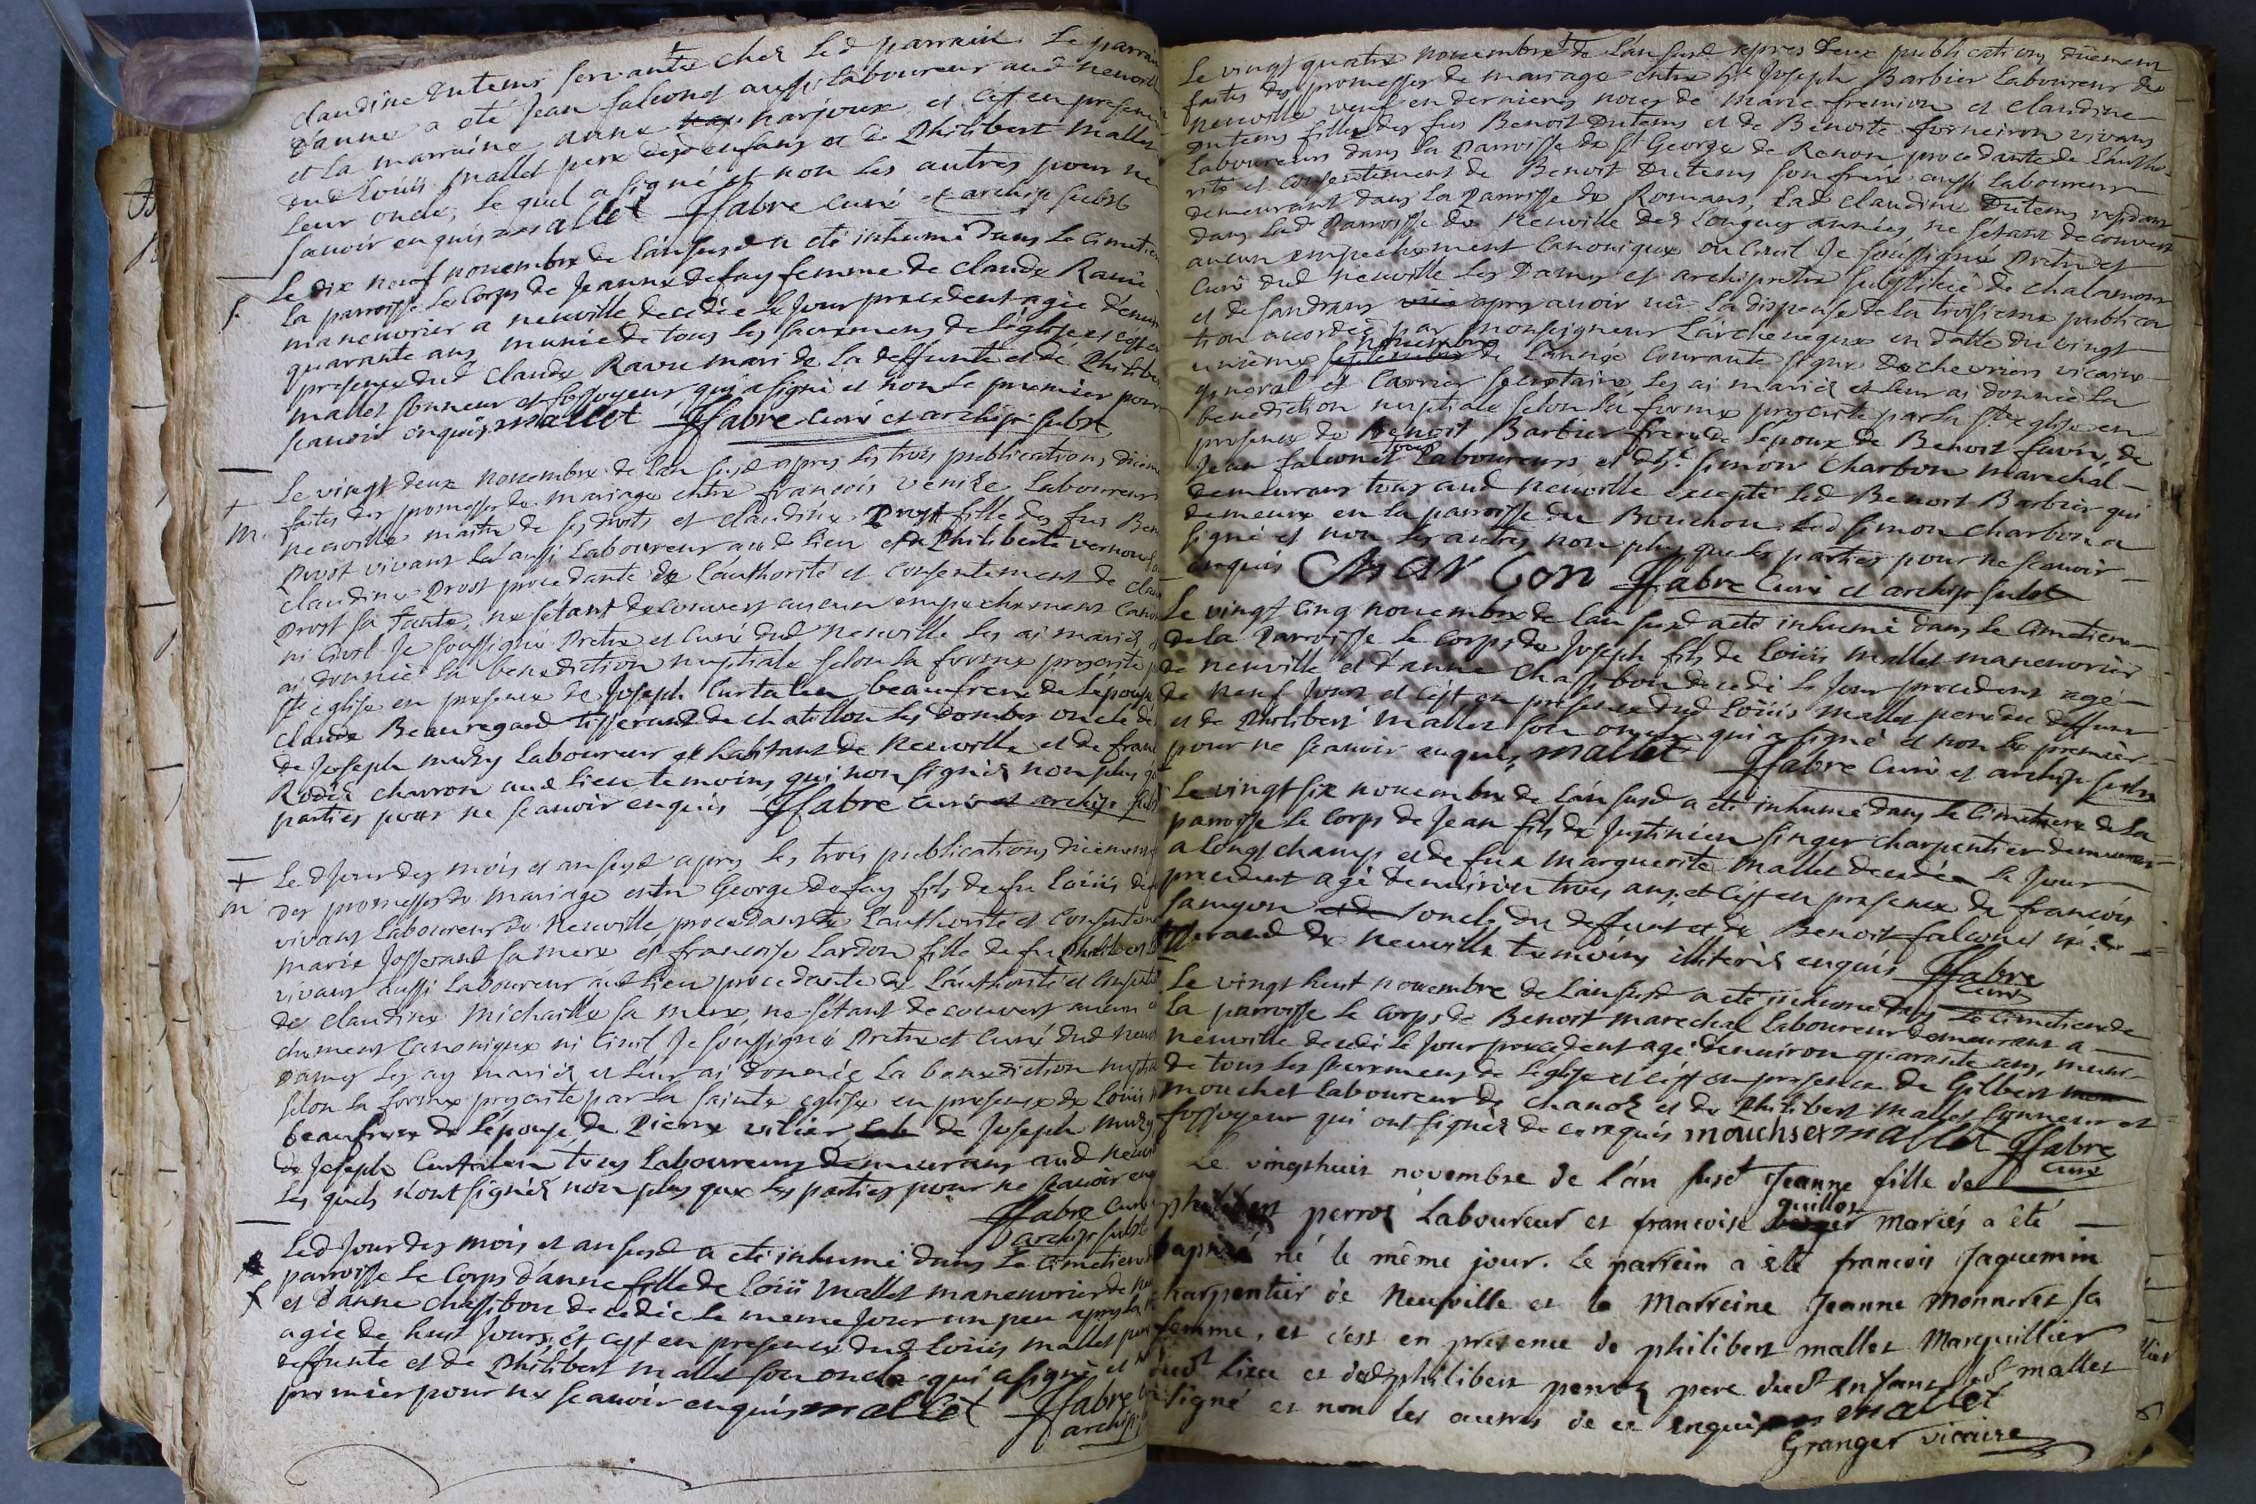 claudine Dutems servante chez led parrain. Le parrain
d'anne a eté Jean falconet aussi laboureur aud neuville
et la marraine anne narjoux, et c'est en presence
dud Loüis mallet pere desd enfans et de Philibert mallet
leur oncle, le quel a signé et non les autres pour ne
savoir enquis mallet ffabre curé et archipr subst
Le dix neuf novembre de l'an susd a eté inhumé dans le cimetiere
La parroisse le corps de Jeanne defay femme de claude Ravie
manouvrier a neuville decedée le jour precedent agée d'environ
quarante ans munie de tous les sacremens de l'eglise, et c'est en
presence dud claude Ravie mari de la deffunte et de Philibert
mallet sonneur et fossoyeur, qui a signé et non le premier pour
scavoir enquis mallet ffabre curé et archipr subst
f.
Le vingt deux novembre de l'an susd apres les trois publications düem
faites des promesses de mariage entre francois venize Laboureur
neuville maitre de ses droits et claudine Prost fille des fus Ben
Prost vivant là aussi Laboureur aud lieu et de Philiberte vernou
claudine Prost procedante de l'authorité et consentement de clau
Prost sa tante, ne s'étant decouvert aucun empechement cano
ni civil Je soussigné Pretre et curé dud neuville les ai mariés
ai donnée la benediction nuptiale selon la forme prescrite p
ste eglise en presence de Joseph Curtalin beaufrere de l'épouse
claude Beauregard tisserand de chatillon les dombes oncle de
de Joseph mury laboureur et habitant de Neuville et de franc
Rodet charron aud lieu temoins qui non signés non plus que
parties pour ne scavoir enquis ffabre curé et archipr subst
+
m.
Led jour des mois et an susd apres les trois publications düement
des promesses de mariage entre George defay fils de fu Loüis def
vivant laboureur de Neuville procedant de l'authorité et consentem
marie Josserand sa mere et francoise Lardon fille de fu Philibert
vivant aussi Laboureur aud lieu procedante de l'authorité et consente
de claudine Michaille sa mere, ne s'étant decouvert aucun em
chement canonique ni civil Je soussigné Pretre et Curé dud neuv
Damy les ay mariés et leur ai donnée la benediction nuptia
selon la forme prescrite par la sainte eglise, en presence de Loüis
beaufrere de l'épouse de Pierre vilier de Joseph mury
de Joseph Curtalin tous Laboureurs demeurans aud neuv
les quels n'ont signés non plus que les parties pour ne scavoir enq
ffabre curé
archipr subst
+
m
Led jour des mois et an susd a eté inhumé dans le cimetiere
parroisse le corps d'anne fille de Loüis mallet manouvrier de neu
et d'anne chassibou decedée le meme jour un peu apres la
agée de huit jours, et c'est en presence dud Loüis mallet pere
deffunte et de Philibert mallet son oncle qui a signé et
premier pour ne scavoir enquis mallet ffabre
archipr
f
Le vingt quatre novembre de l'an susd apres deux publications düement
faites des promesses de mariage entre hte Joseph Barbier Laboureur de
neuville veuf en dernieres noces de marie fremion et claudine
Dutems fille des fus Benoit Dutems et de Benoite forneiron vivans
Laboureurs dans la Parroisse de St George de Renon procedante de l'autho-
rité et consentement de Benoit Dutems son frere aussi Laboureur
demeurant dans la Parroisse de Romans, Lad claudine Dutems residant
dans lad Parroisse de Neuville des longues années, ne s'étant decouvert
aucun empechement canonique ou civil Je soussigné Pretre et
curé dud neuville les Damy et archipretre substitué de chalamon
et de sandrans apres avoir vû la dispense de la troisieme publica
tion accordée par Monseigneur L'archeveque en datte du vingt
unieme novembre de l'année courante signé De chevriers vicaire
general et Carrier secretaire les ai mariés et leur ai donnée la
benediction nuptiale selon la forme prescrite par la ste eglise en
presence de Benoit Barbier frere de l'époux de Benoit favre, de
Jean falconet tous Laboureurs et de Sr. Simon Charbon marechal
demeurans tous aud neuville excepté led Benoit Barbier qui
demeure en la parroisse du Bouchou. Led Simon Charbon a
signé et non les autres non plus que les parties pour ne scavoir
enquis Char bon ffabre Curé et archipr subst
Le vingt cinq novembre de l'an susd a eté inhumé dans le cimetiere
de la Parroisse le corps de Joseph fils de Loüis mallet manouvrier
de neuville et d'anne Chassibou decedé le jour precedent agé
de neuf jours et c'est en presence dud Loüis mallet pere du deffunt
et de Philibert mallet son oncle qui a signé et non le premier
pour ne scavoir enquis mallet ffabre curé et archipr subst
Le vingt six novembre de l'an susd a eté inhumé dans le Cimetiere de la
parroisse le corps de Jean fils de Justinien singer charpentier demeurant
a Longchamp et de fue marguerite mallet decedé le jour
precedent agé d'environ trois ans, et c'est en presence de francois
samyon oncle du deffunt et de Benoit falconet
tisserand de neuville temoins illiterés enquis ffabre
curé
Le vingt huit novembre de l'an susd a eté inhumé dans le cimetiere de
la parroisse le corps de Benoit marechal laboureur demeurant a
neuville decedé le jour precedent agé d'environ quarante ans, muni
de tous les sacremens de l'eglise et c'est en presence de Gilbert
mouchet laboureur de chanoz et de Philibert mallet sonneur et
fossoyeur qui ont signés de ce requis mouchset mallet ffabre
curé
Le vingthuit novembre de l'án susd Jeanne fille de
philibert perrot Laboureur et francoise quillot mariés a été
baptisé, né le même jour. le parrein a été francois Jaquemin
charpentier de Neuville et la Marreine Jeanne Monneret sa
femme, et c'est en présence de philibert mallet Marguillier
dud. lieu et dud philibert perrot pere dud. enfant led mallet
signé et non les autres de ce enquis mallet
Granger vicaire